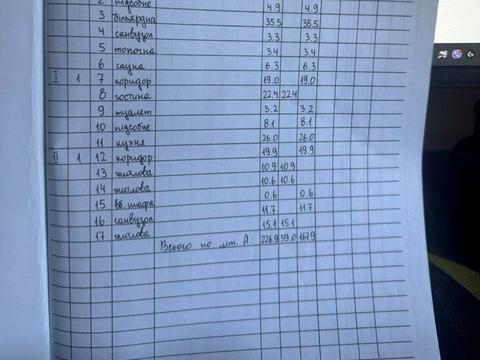 2 підсобне 4.9 4.9
3 більярдна 35.5 35.5
4 санвузол 3.3 3.3
5 топочна 3.4 3.4
6 сауна 6.3 6.3
I 1 7 коридор 19.0 19.0
8 гостина 22.4 22.4
9 туалет 3.2 3.2
10 підсобне 8.1 8.1
11 кухня 26.0 26.0
II 1 12 коридор 19.9 19.9
13 житлова 10.9 10.9
14 житлова 10.6 10.6
15 вб шафа 0.6 0.6
16 санвузол 11.7 11.7
17 житлова 15.1 15.1
Всього по літ. А: 226.9 59.0 167.9